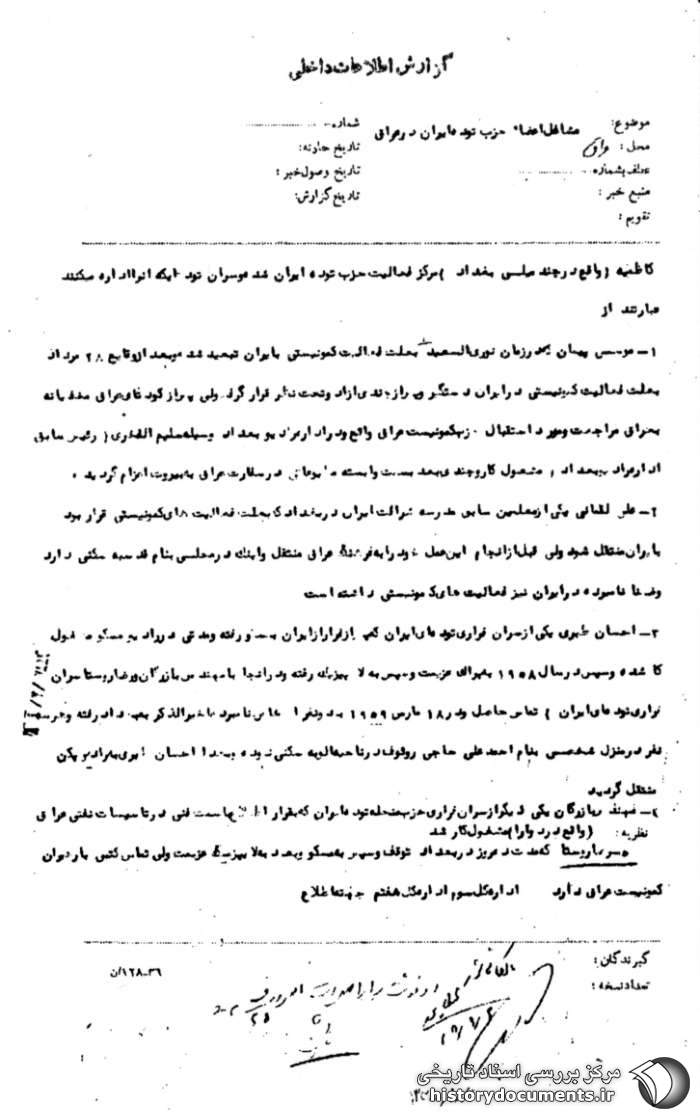 گزارش اطلاعات داخلی
موضوع: مشاغل اعضاء حزب توده ایران در عراق
شماره
محل: عراق
تاریخ حادثه:
عطف بشماره
تاریخ وصول خبر:
منبع خبر:
تاریخ گزارش:
تقویم:
کاظمیه (واقع در چند میلی بغداد) مرکز فعالیت حزب توده ایران شده و سران توده ایکه آنرا اداره میکنند
عبارتند از
۱- موسس پیمان که در زمان نوری السعید بعلت فعالیت کمونیستی بایران تبعید شد و بعد از وقایع ۲۸ مرداد
بعلت فعالیت کمونیستی در ایران دستگیر و پس از چندی آزاد و تحت نظر قرار گرفت ولی پس از کودتای عراق مخفیانه
بعراق مراجعت و مورد استقبال حزب کمونیست عراق واقع و در اداره رادیو بغداد بوسیله سلیم الفخری (رئیس سابق
اداره رادیو بغداد) مشغول کار و چندی بعد بسمت وابسته مطبوعاتی در سفارت عراق به بیروت اعزام گردید.
۲- علی لقمانی یکی از معلمین سابق مدرسه شرافت ایران در بغداد که بعلت فعالیت های کمونیستی قرار بود
بایران منتقل شود ولی قبل از انجام این عمل خود را به فرهنگ عراق منتقل و اینک در محلی بنام قدسیه سکنی دارد
وضمنا نامبرده در ایران نیز فعالیت های کمونیستی داشته است
۳- احسان طبری یکی از سران فراری توده ای ایران که پس از فرار از ایران بمسکو رفته و مدتی در رادیو مسکو مشغول
کار شده و سپس در سال ۱۹۵۸ به پراگ عزیمت و سپس به لایپزیک رفته و در آنجا با مهندس بازرگان و رضا روستا سران
فراری توده ای ایران) تماس حاصل و در ۱۸ مارس ۱۹۵۹ به دو نفر اشخاص نامبرده اخیرالذکر به بغداد رفته و هر سه
نفر در منزل شخصی بنام احمد علی حاجی رئوف در ناحیه الویه سکنی نموده و بعدا احسان طبری به رادیو پکن
منتقل گردید
۴- مهندس بازرگان یکی دیگر از سران فراری حزب منحله توده ایران که بقرار اطلاع بسمت فنی در تاسیسات نفتی عراق
نظریه: (واقع در دوارا) مشغول کار شد
رضا روستا که مدت دو روز در بغداد توقف و سپس به مسکو و بعد به لایپزیک عزیمت ولی تماس کتبی با رفقای
کمونیست عراق دارد اداره کل سوم اداره کل هفتم جهت اطلاع
گیرندگان:
تعداد نسخه:
۱۲۸-۳۶/ن
مرکز بررسی اسناد تاریخی
historydocuments.ir